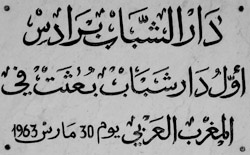 دار الشباب برادس
أول دار شباب بعثت في
المغرب العربي يوم 30 مارس 1963